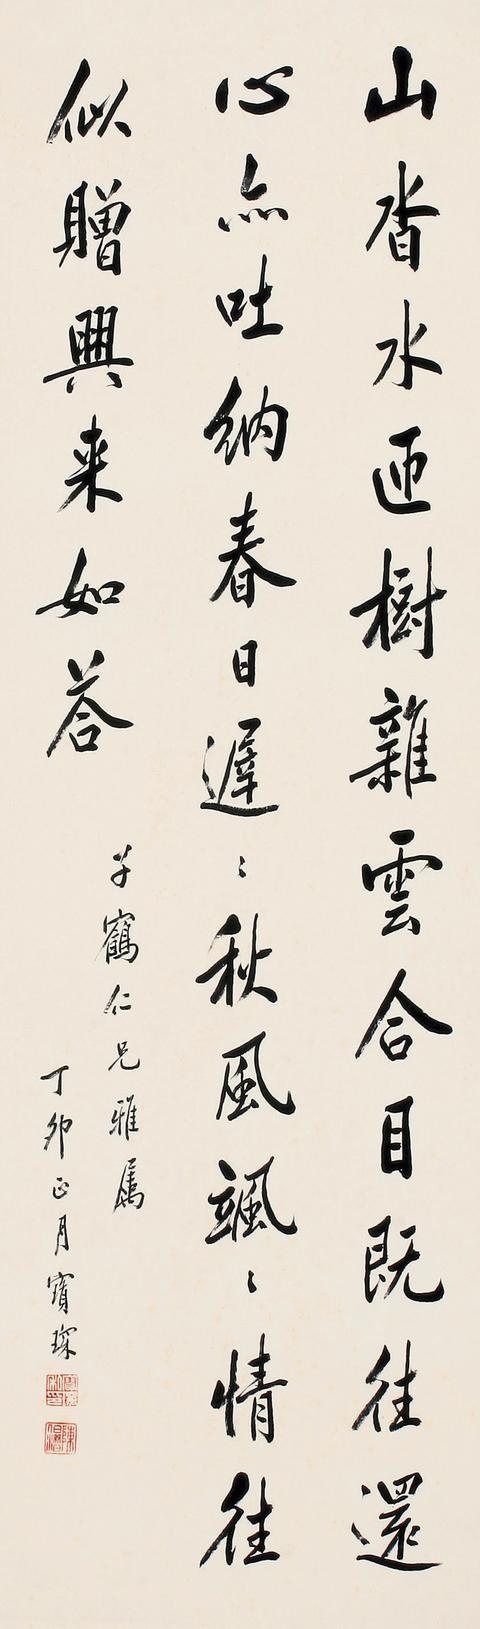 山沓水匝樹雜雲合目既往還
心亦吐納春日遲〻秋風颯〻情往
似贈興来如答
子鶴仁兄雅属
丁卯正月寶琛